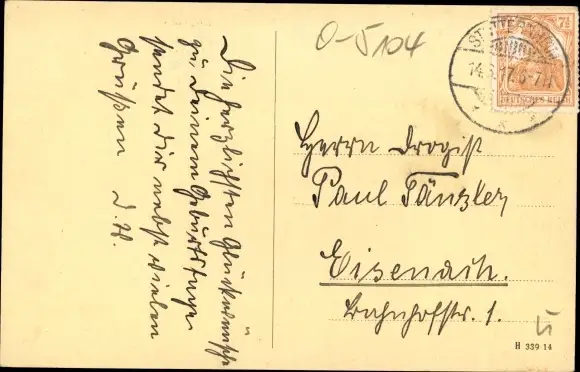 Die herzlichsten Glückwünsche
zu Deinem Geburtstage
sendet Dir nebst vielen
Grüßen
J. W.
O-5104
7½
14.6.17. 6-7 N
DEUTSCHES REICH
Herrn Drogist
Paul Tänzler
Eisenach.
Bahnhofstr. 1.
H 339 14